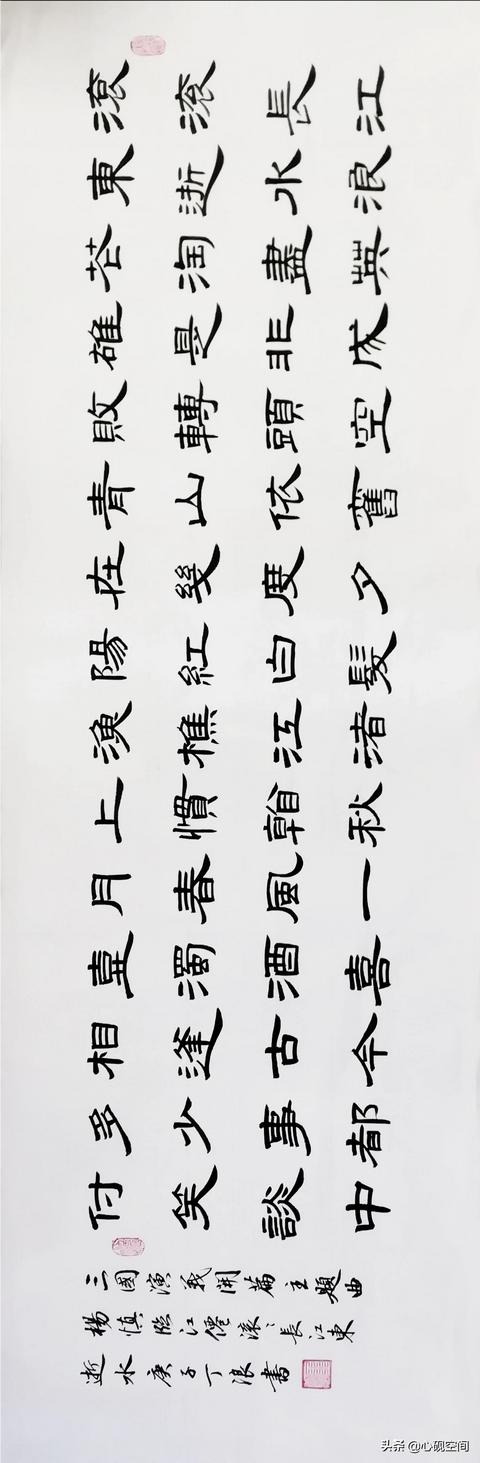 滚滚長江
東逝水浪
花淘盡英
雄是非成
敗轉頭空
青山依舊
在幾度夕
陽紅白髮
漁樵江渚
上慣看秋
月春風一
壺濁酒喜
相逢古今
多少事都
付笑談中
三國演義開篇主題曲
楊慎臨江僊滚〻長江東
逝水庚子丁浪書
头条 @心砚空间